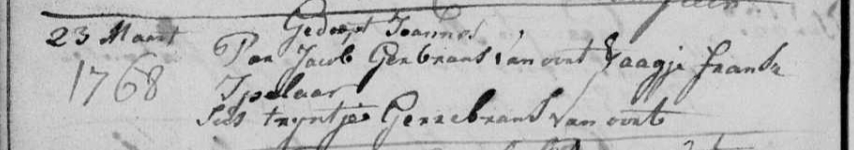 23 Maart Gedoopt Joannes
1768 Par Jacob Genbrans van oort & aagje frans
Ipelaar
Sus tryntje Gerrebrans van oort